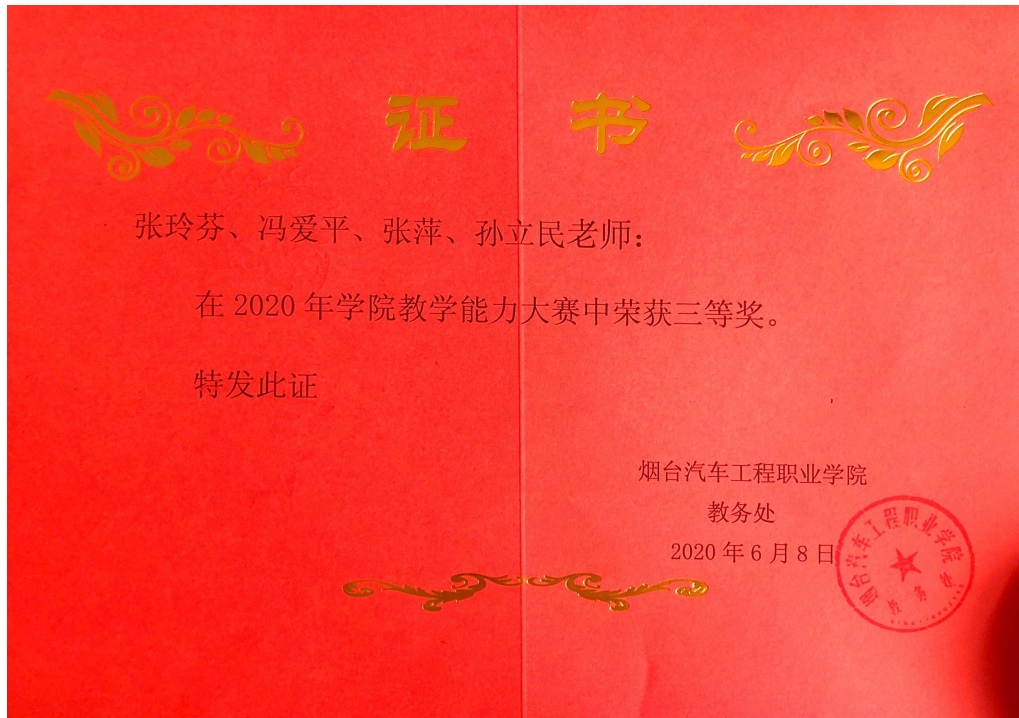 证 书
张玲芬、冯爱平、张萍、孙立民老师：
在 2020 年学院教学能力大赛中荣获三等奖。
特发此证
烟台汽车工程职业学院
教务处
2020 年 6 月 8 日
烟台汽车工程职业学院
教务处